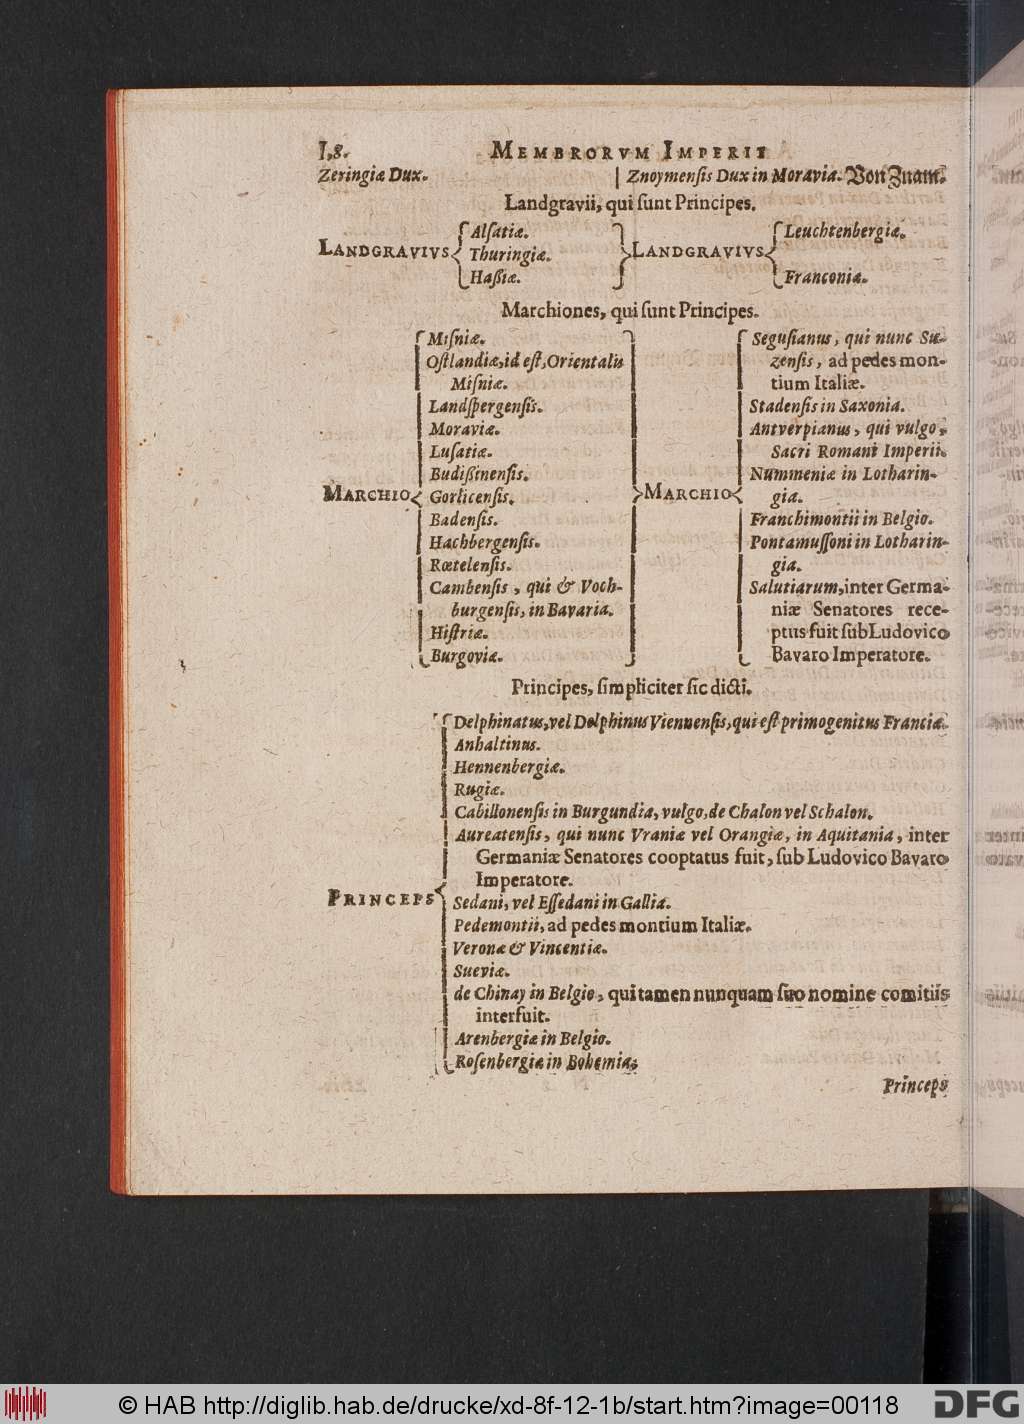 I,8.
MEMBRORVM IMPERII
Zeringiæ Dux.
Znoymensis Dux in Moravia. Von Znam.
Landgravii, qui ſunt Principes.
LANDGRAVIVS
Alſatiæ.
Thuringiæ.
Haßiæ.
LANDGRAVIVS
Leuchtenbergiæ.
Franconiæ.
Marchiones, qui ſunt Principes.
MARCHIO
Miſniæ.
Oſtlandiæ, id eſt, Orientalis
Miſniæ.
Landſpergenſis.
Moraviæ.
Luſatiæ.
Budißinenſis.
Gorlicenſis.
Badenſis.
Hachbergenſis.
Rœtelenſis.
Cambenſis, qui & Voch-
burgenſis, in Bavaria.
Hiſtriæ.
Burgoviæ.
MARCHIO
Seguſianus, qui nunc Su-
zenſis, ad pedes mon-
tium Italiæ.
Stadenſis in Saxonia.
Antverpianus, qui vulgo,
Sacri Romani Imperii.
Nummeniæ in Lotharin-
gia.
Franchimontii in Belgio.
Pontamuſſoni in Lotharin-
gia.
Salutiarum, inter Germa-
niæ Senatores rece-
ptus fuit ſub Ludovico
Bavaro Imperatore.
Principes, ſimpliciter ſic dicti.
PRINCEPS
Delphinatus, vel Delphinus Viennenſis, qui eſt primogenitus Franciæ.
Anhaltinus.
Hennenbergiæ.
Rugiæ.
Cabillonenſis in Burgundia, vulgo, de Chalon vel Schalon.
Aureatenſis, qui nunc Vraniæ vel Orangiæ, in Aquitania, inter
Germaniæ Senatores cooptatus fuit, ſub Ludovico Bavaro
Imperatore.
Sedani, vel Eſſedani in Gallia.
Pedemontii, ad pedes montium Italiæ.
Veronæ & Vincentiæ.
Sueviæ.
de Chinay in Belgio, qui tamen nunquam ſuo nomine comitiis
interfuit.
Arenbergiæ in Belgio.
Roſenbergiæ in Bohemia;
Princeps
© HAB http://diglib.hab.de/drucke/xd-8f-12-1b/start.htm?image=00118
DFG